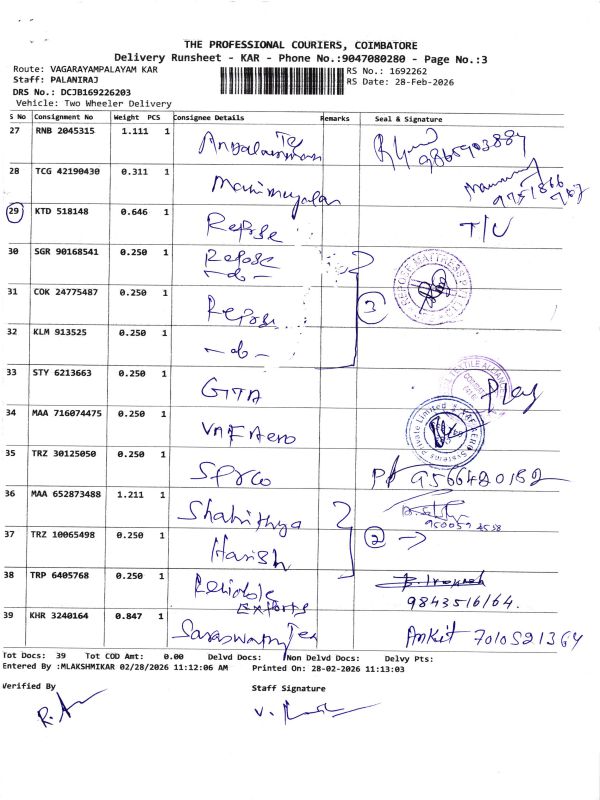 THE PROFESSIONAL COURIERS, COIMBATORE
Delivery Runsheet - KAR - Phone No.:9047080280 - Page No.:3
Route: VAGARAYAMPALAYAM KAR
RS No.: 1692262
Staff: PALANIRAJ
RS Date: 28-Feb-2026
DRS No.: DCJB169226203
Vehicle: Two Wheeler Delivery
S No Consignment No Weight PCS Consignee Details Remarks Seal & Signature
27 RNB 2045315 1.111 1
28 TCG 42190430 0.311 1
29 KTD 518148 0.646 1 Repose T/U
30 SGR 90168541 0.250 1 Repose
-do-
31 COK 24775487 0.250 1 Repose 3
REPOSE MATTRESS PVT
32 KLM 913525 0.250 1 -do-
33 STY 6213663 0.250 1 GTTA
TEXTILE
34 MAA 716074475 0.250 1 VAF Aero
Private Limited
35 TRZ 30125050 0.250 1 9566420182
36 MAA 652873488 1.211 1
37 TRZ 10065498 0.250 1 Harish 2
38 TRP 6405768 0.250 1 Reliable
Exports
9843516164.
39 KHR 3240164 0.847 1 Saraswathy Tex Ankit 7010521364
Tot Docs: 39 Tot COD Amt: 0.00 Delvd Docs: Non Delvd Docs: Delvy Pts:
Entered By :MLAKSHMIKAR 02/28/2026 11:12:06 AM Printed On: 28-02-2026 11:13:03
Verified By
Staff Signature